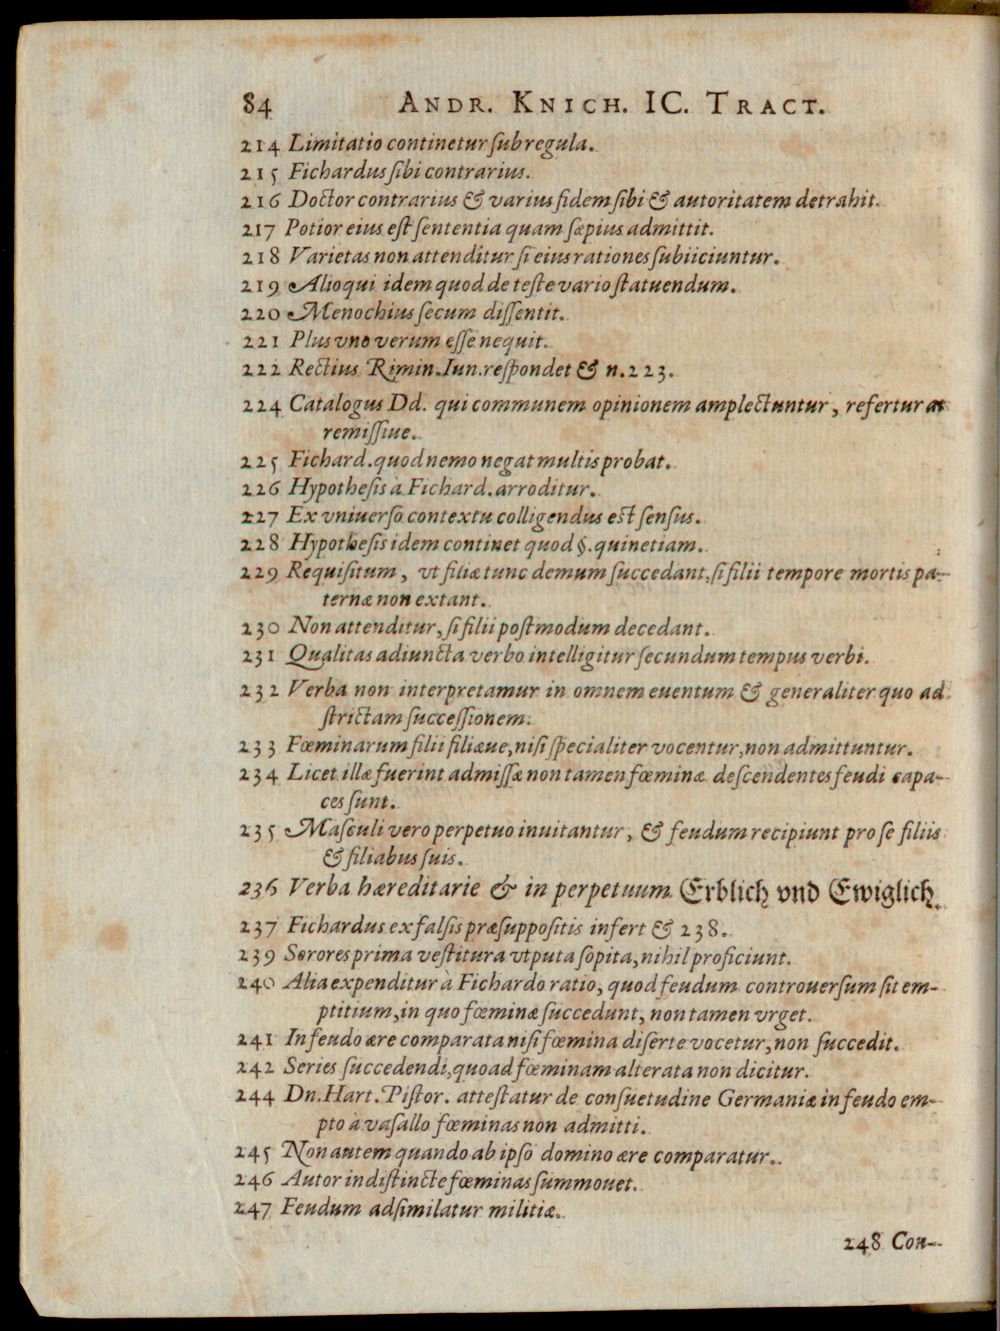 84 ANDR. KNICH. IC. TRACT.
214 Limitatio continetur sub regula.
215 Fichardus sibi contrarius.
216 Doctor contrarius & varius fidem sibi & autoritatem detrahit.
217 Potior eius est sententia quam sæpius admittit.
218 Varietas non attenditur si eius rationes subiiciuntur.
219 Alioqui idem quod de teste vario statuendum.
220 Menochius secum dissentit.
221 Plus vno verum esse nequit.
222 Rectius Rimin. Iun. respondet & n. 223.
224 Catalogus Dd. qui communem opinionem amplectuntur, refertur
remissiue.
225 Fichard. quod nemo negat multis probat.
226 Hypothesis à Fichard. arroditur.
227 Ex vniuerso contextu colligendus est sensus.
228 Hypothesis idem continet quod §. quinetiam.
229 Requisitum, vt filiæ tunc demum succedant, si filii tempore mortis pa-
ternæ non extant.
230 Non attenditur, si filii postmodum decedant.
231 Qualitas adiuncta verbo intelligitur secundum tempus verbi.
232 Verba non interpretamur in omnem euentum & generaliter quo ad
strictam successionem.
233 Fœminarum filii filiæue, nisi specialiter vocentur, non admittuntur.
234 Licet illæ fuerint admissæ non tamen fœminæ descendentes feudi capa-
ces sunt.
235 Masculi vero perpetuo inuitantur, & feudum recipiunt pro se filiis
& filiabus suis.
236 Verba hæreditarie & in perpetuum Erblich vnd Ewiglich.
237 Fichardus ex falsis præsuppositis infert & 238.
239 Sorores prima vestitura vtputa sopita, nihil proficiunt.
240 Alia expenditur à Fichardo ratio, quod feudum controuersum sit em-
ptitium, in quo fœminæ succedunt, non tamen vrget.
241 In feudo ære comparata nisi fœmina diserte vocetur, non succedit.
242 Series succedendi, quoad fœminam alterata non dicitur.
244 Dn. Hart. Pistor. attestatur de consuetudine Germaniæ in feudo em-
pto à vasallo fœminas non admitti.
245 Non autem quando ab ipso domino ære comparatur.
246 Autor indistincte fœminas summouet.
247 Feudum adsimilatur militiæ.
248 Con-